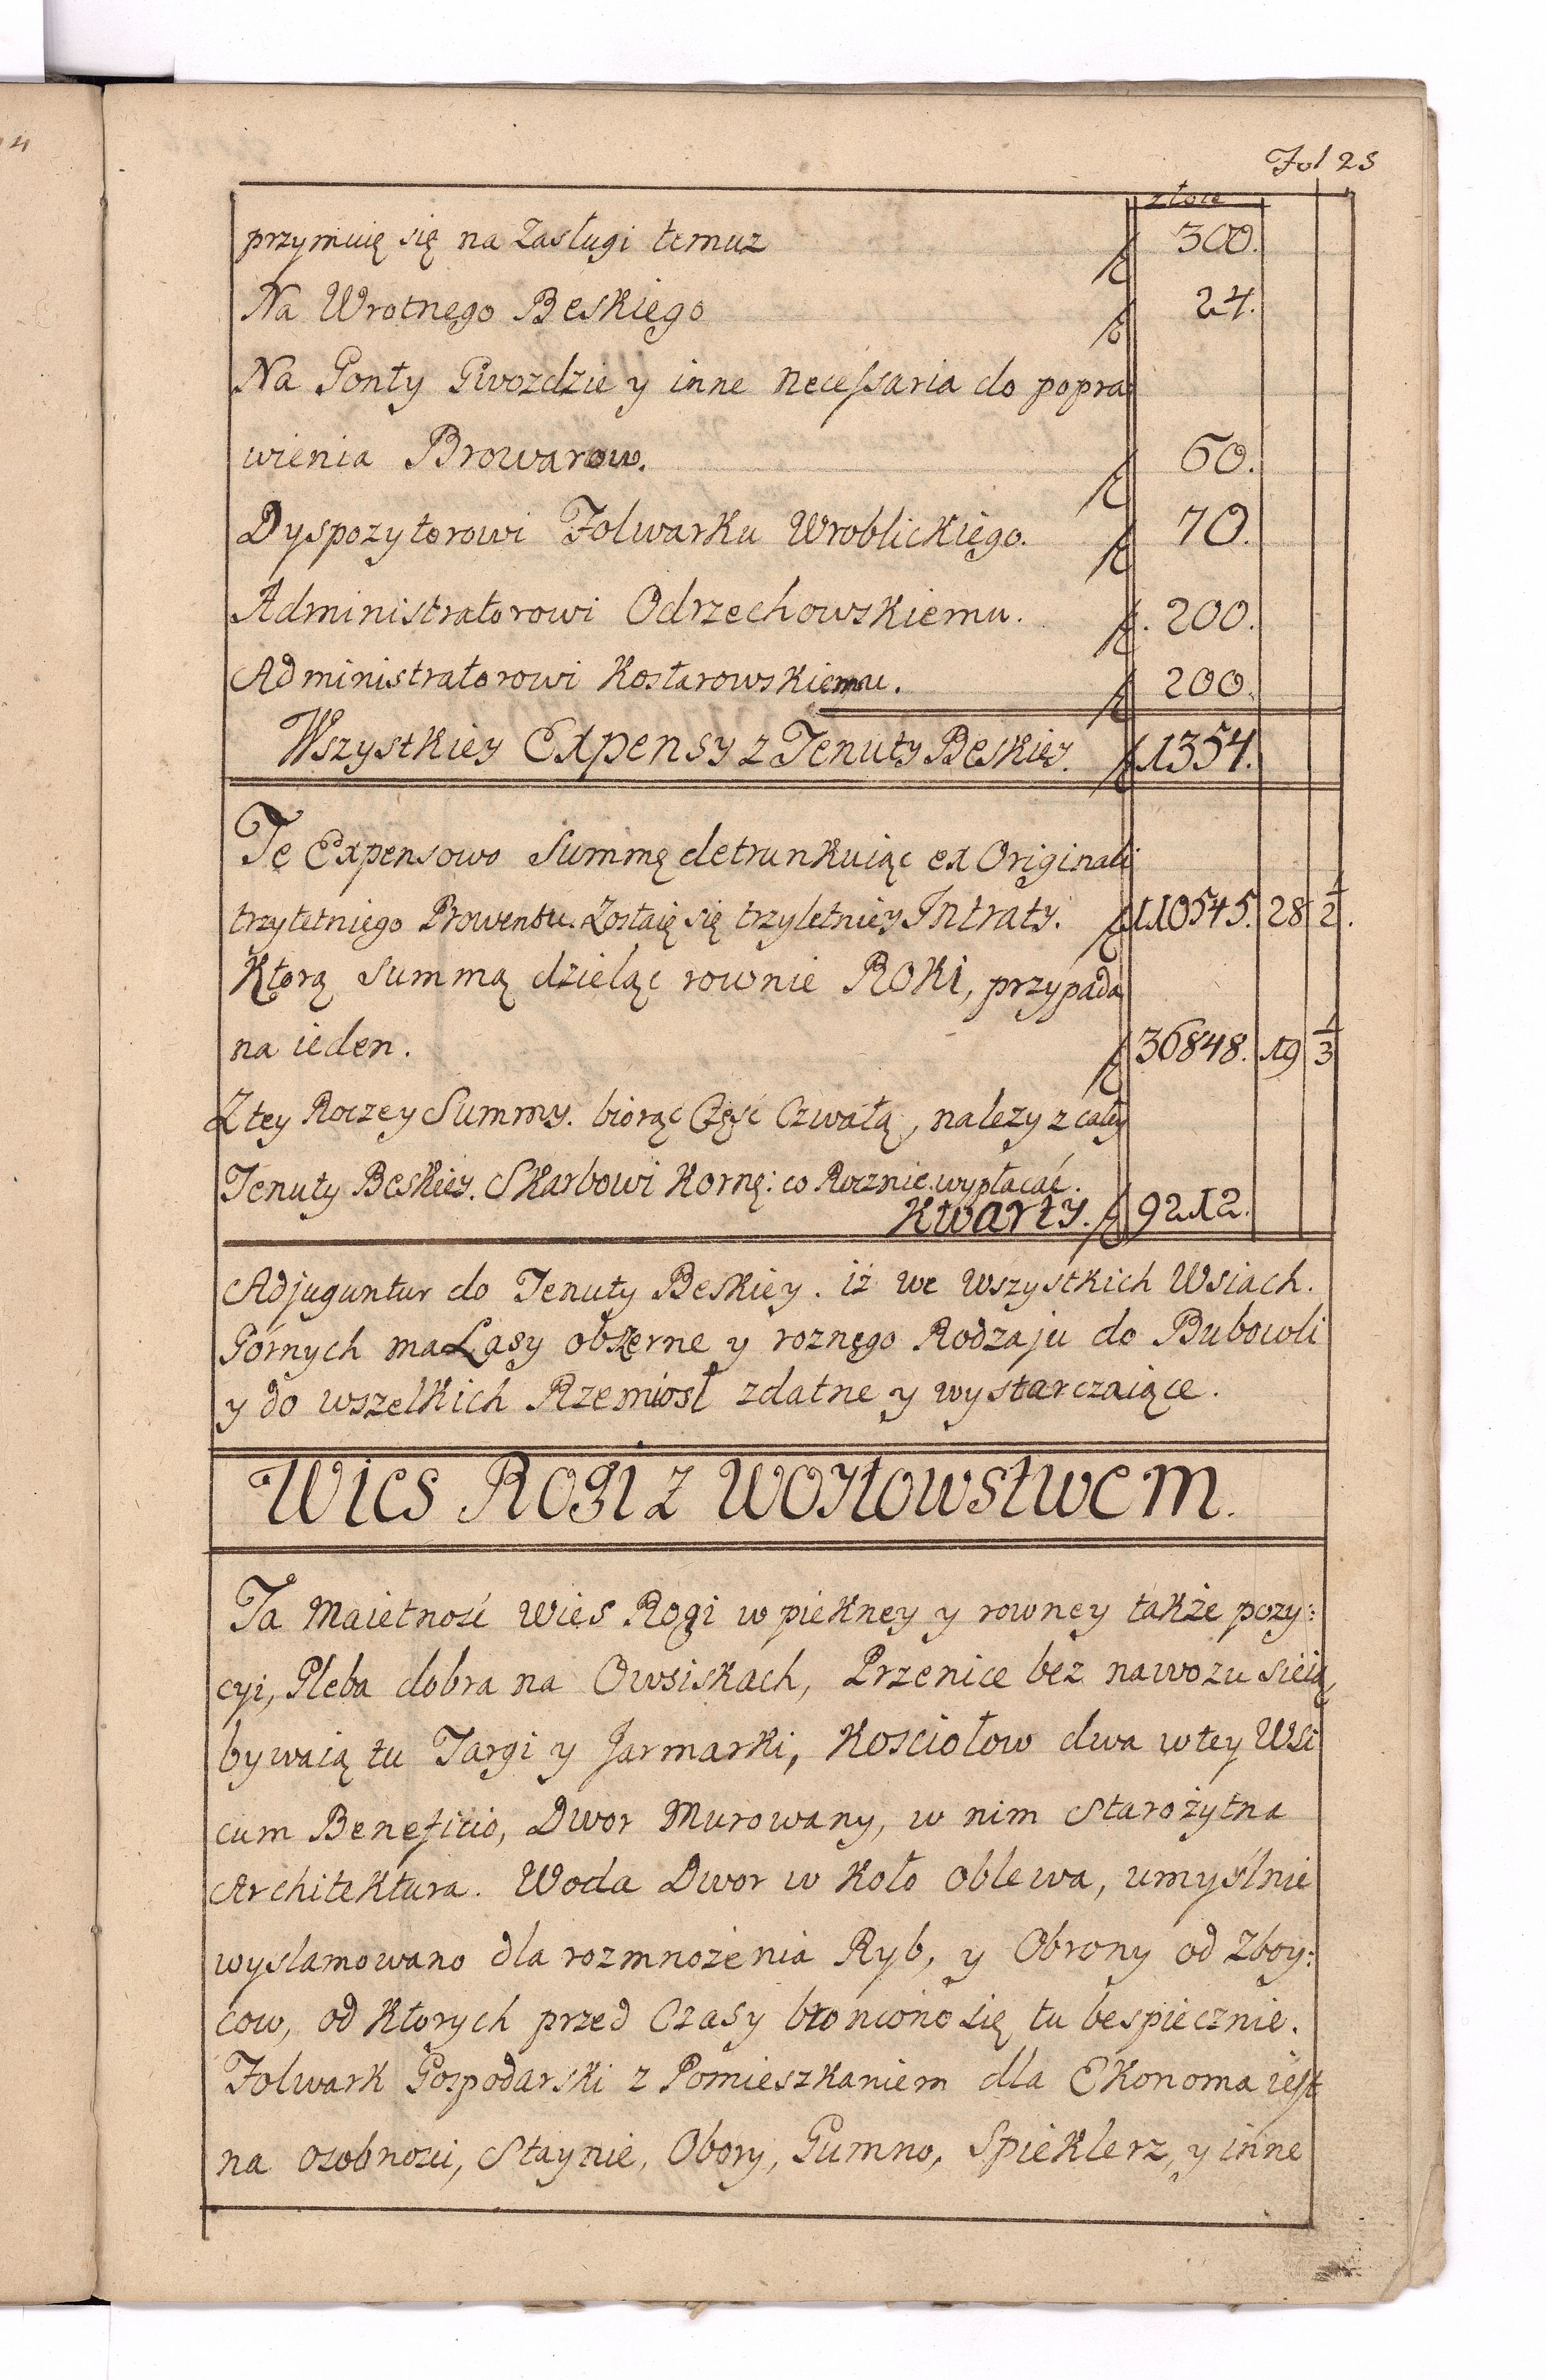 Fol 25
złote
przymuię się na Zasługi temuz f 300.
Na Wrotnego Beskiego f 24.
Na Gonty Gwozdzie y inne necessaria do popra
wienia Browarow. f 60.
Dyspozytorowi Folwarku Wroblickiego. f 70.
Administratorowi Odrzechowskiemu. f. 200.
Administratorowi Kostarowskiemu. f 200.
Wszystkiey Expensy z Tenuty Beskiey. f 1354.
Tę Expensowo Summę detrunkuiąc ex Originali
trzyletniego Prowentu. Zostaię się trzyletniey Intraty. f 110545. 28 1/2.
Ktorą Summą dzieląc rownie Roki, przypada
na ieden. f 36848. 19 1/3
Z tey Roczey Summy. biorąc Część Czwałą, nalezy z całey
Tenuty Beskiey. Skarbowi Kornę: co Rocznie wypłacać.
Kwarty. f 9212.
Adjuguntur do Tenuty Beskiey. iż we Wszystkich Wsiach.
Górnych ma Lasy obszerne y roznego Rodzaju do Bubowli
y do wszelkich Rzemiosł zdatne y wystarczaiące.
Wies Rogi z Woytowstwem.
Ta Maietność Wies Rogi w piekney y rowney także pozy:
cyi, Gleba dobra na Owsiskach, Przenice bez nawozu sieią,
bywaią tu Targi y Jarmarki, Kosciołow dwa w tey Wsi
cum Beneficio, Dwor Murowany, w nim Starożytna
Architektura. Woda Dwor w koło oblewa, umyślnie
wyslamowano dla rozmnożenia Ryb, y Obrony od Zboy:
cow, od Ktorych przed Czasy broniono się tu bespiecznie.
Folwark Gospodarski z Pomieszkaniem dla Ekonoma iest
na osobnosci, Staynie, Obory, Gumno, Spieklerz, y inne